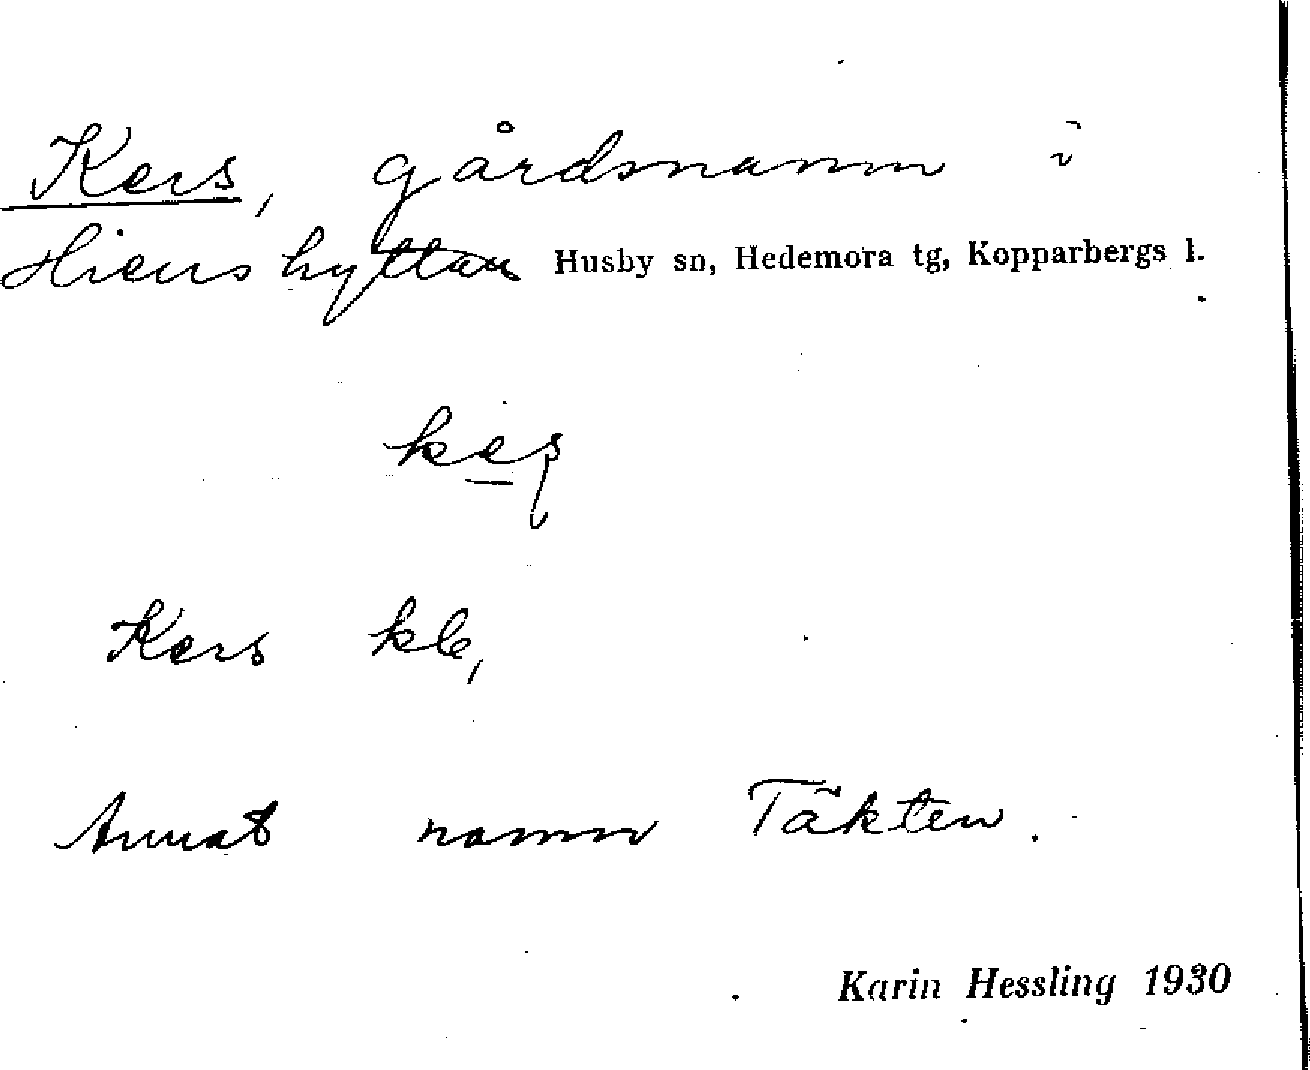 Kers, gårdsnamn i
Hienshyttan Husby sn, Hedemora tg, Kopparbergs l.
Kers kb,
Annat namn Täkten.
Karin Hessling 1930